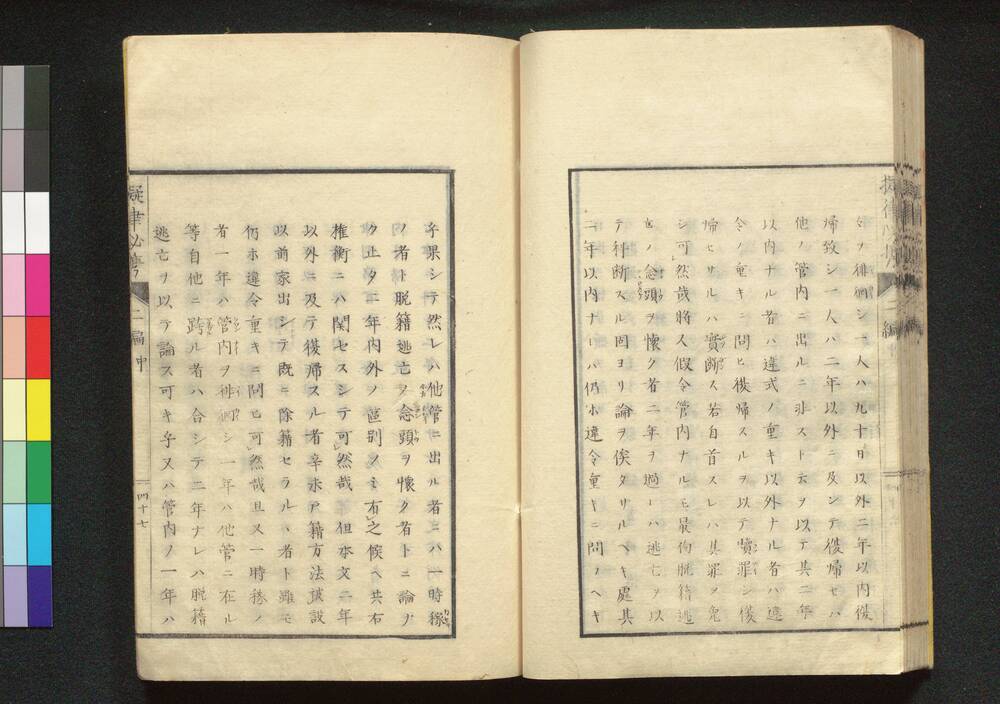 ヲ徘徊シ一人ハ九十日以外二年以内復
帰致シ一人ハ二年以外ニ及シテ復帰セハ
他ノ管内ニ出ルニ非スト云ヲ以テ其二年
以内ナル者ハ違式ノ重キ以外ナル者ハ違
令ノ重キニ問ヒ復帰スルヲ以テ贖罪シ復
帰セサルハ實断ス若自首スレハ其罪ヲ免
シ可然哉將又假令管内ナルモ最初脱籍逃
亡ノ念頭ヲ懷ク者二年ヲ過レハ逃亡ヲ以
テ科断スル固ヨリ論ヲ俟タサルヘキ處其
二年以内ナレハ仍ホ違令重キニ問フヘキ
乎果シテ然レハ他管ニ出ル者ニハ一時稼
ノ者ト脱籍逃亡ヲ念頭ヲ懷ク者トニ論ナ
ク止タ二年内外ノ區别ノミ有之候ヘ共右
権衡ニハ関セスシテ可然哉 但本文二年
以外ニ及テ復帰スル者幸ホア籍方法被設
以前家出シテ既ニ除籍セラルヽ者ト雖モ
仍ホ違令重キニ問ヒ可然哉且又一時稼ノ
者一年ハ管内ヲ徘徊シ一年ハ他管ニ在ル
等自他ニ跨ル者ハ合シテ二年ナレハ脱籍
逃亡ヲ以テ論ス可キ乎又ハ管内ノ一年ハ
擬律必携 二編中
四十七